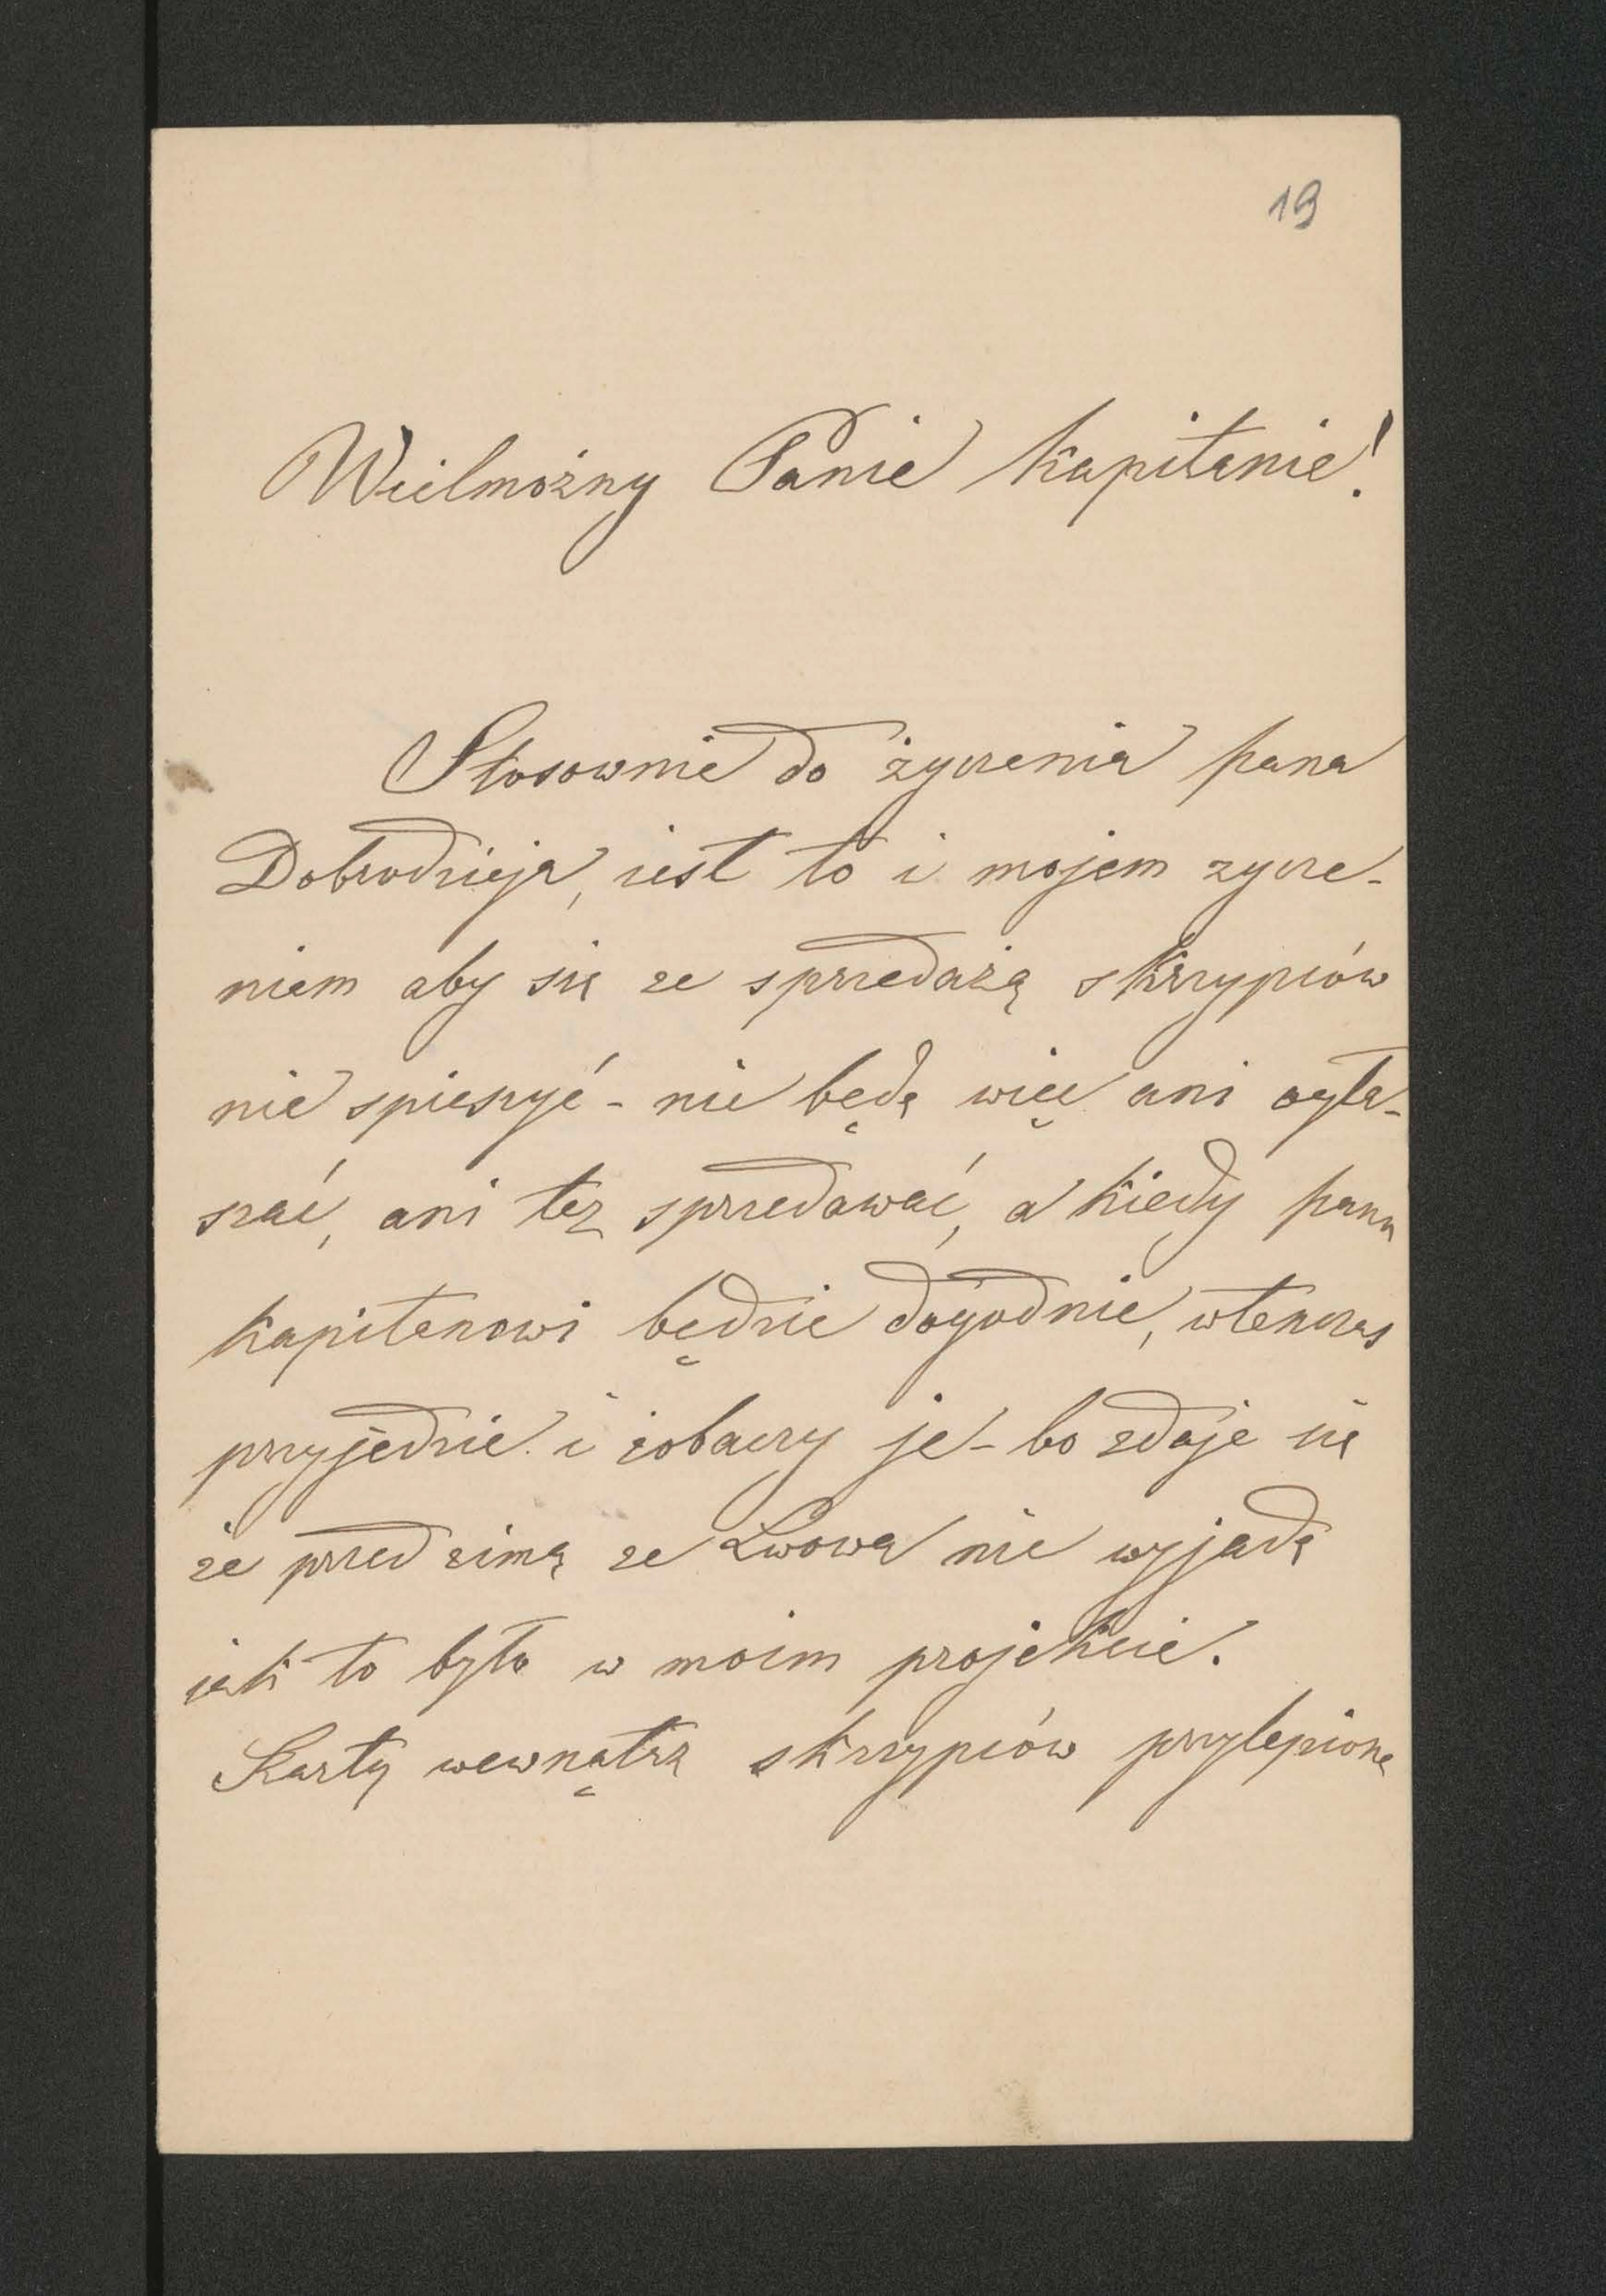 19
Wielmożny Panie Kapitanie!
Stosownie do życzenia pana
Dobrodzieja, iest to i mojem zycze-
niem aby się ze sprzedażą skrzypców
nie spieszyć - nie będę więc ani ogła-
szać, ani tez sprzedawać, a kiedy panu
Kapitanowi będzie dogodnie, wtenczas
przyjedzie i zobaczy je - bo zdaje się
że przed zimą ze Lwowa nie wyjadę
jak to było w moim projekcie.
Kartę wewnątrz skrzypców przylepioną